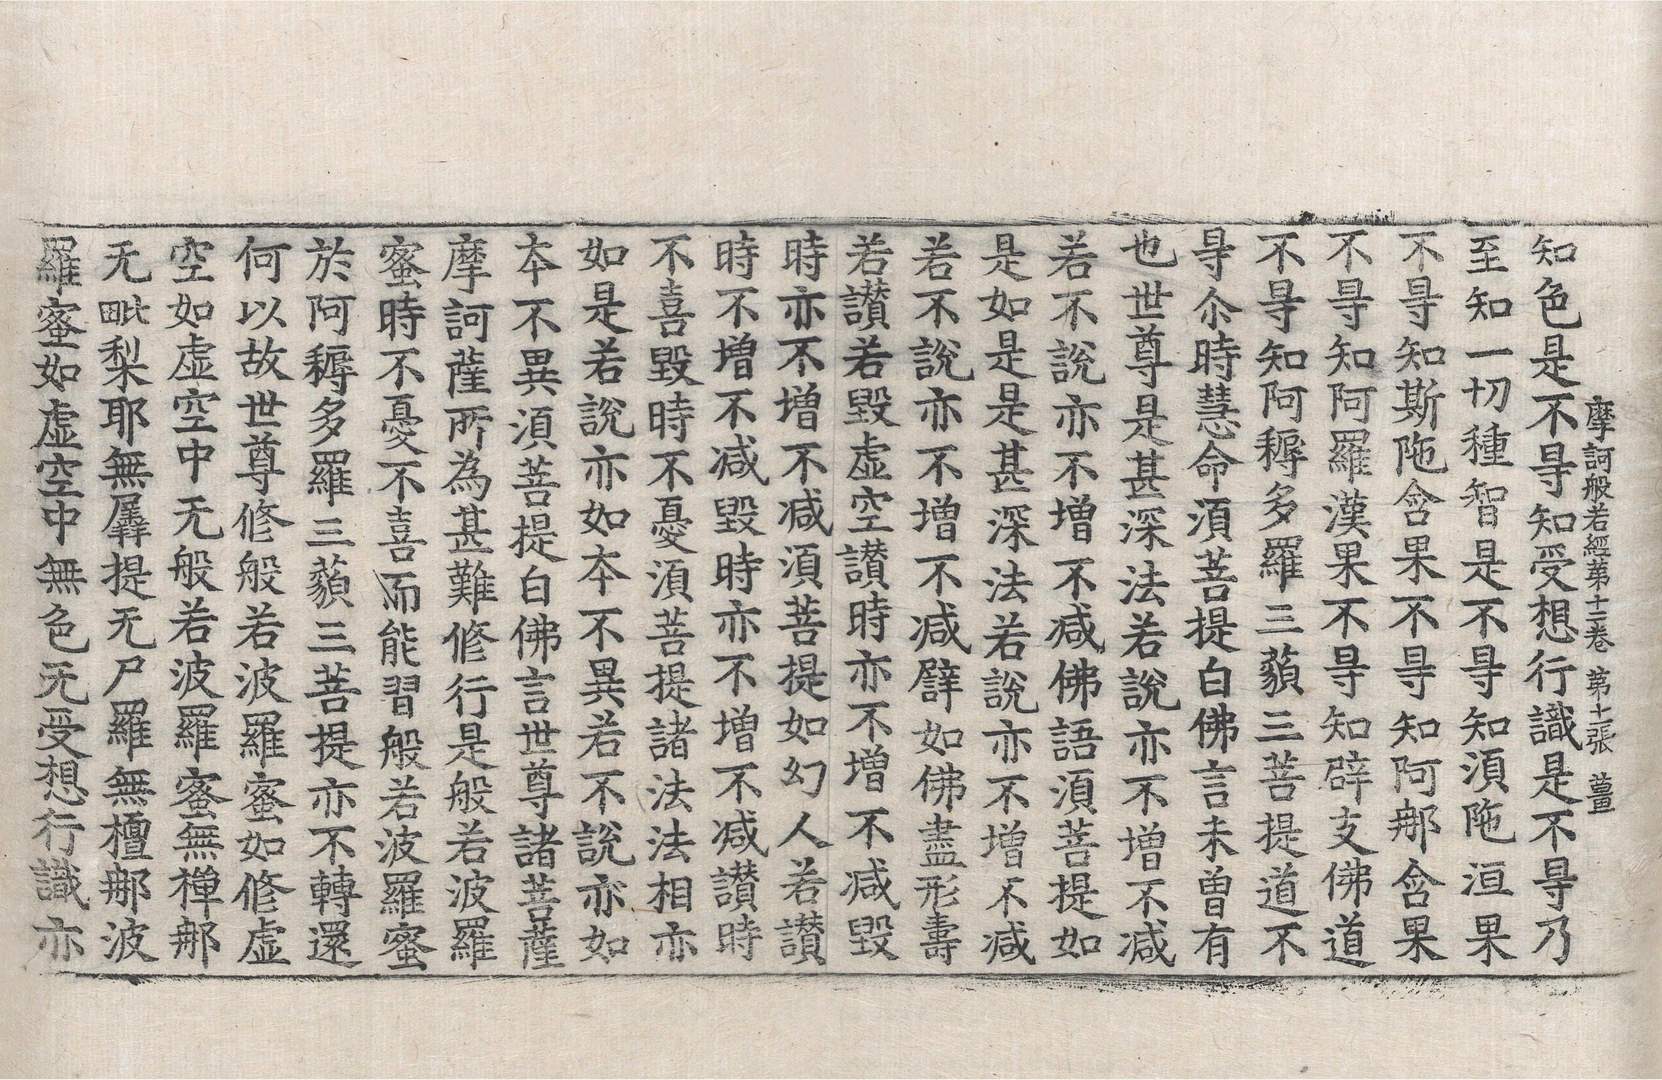 摩訶般若經苐十二卷　苐十張　薑
知色是不㝵知受想行識是不㝵乃
至知一切種智是不㝵知湏陁洹果
不㝵知斯陁含果不㝵知阿郍含果
不㝵知阿羅漢果不㝵知辟支佛道
不㝵知阿耨多羅三藐三菩提道不
㝵尒時慧命湏菩提白佛言未曾有
也世尊是甚深法若說亦不增不减
若不說亦不增不减佛語湏菩提如
是如是是甚深法若說亦不增不减
若不說亦不增不减譬如佛盡形壽
若讃若毀虛空讃時亦不增不减毀
時亦不增不减湏菩提如幻人若讃
時不增不减毀時亦不增不减讃時
不喜毀時不憂湏菩提諸法法相亦
如是若說亦如夲不異若不說亦如
夲不異湏菩提白佛言世尊諸菩薩
摩訶薩所為甚難修行是般若波羅
蜜時不憂不喜而能習般若波羅蜜
於阿耨多羅三藐三菩提亦不轉還
何以故世尊修般若波羅蜜如修虛
空如虛空中无般若波羅蜜無禪郍
无毗梨耶無羼提无尸羅無檀郍波
羅蜜如虛空中無色无受想行識亦